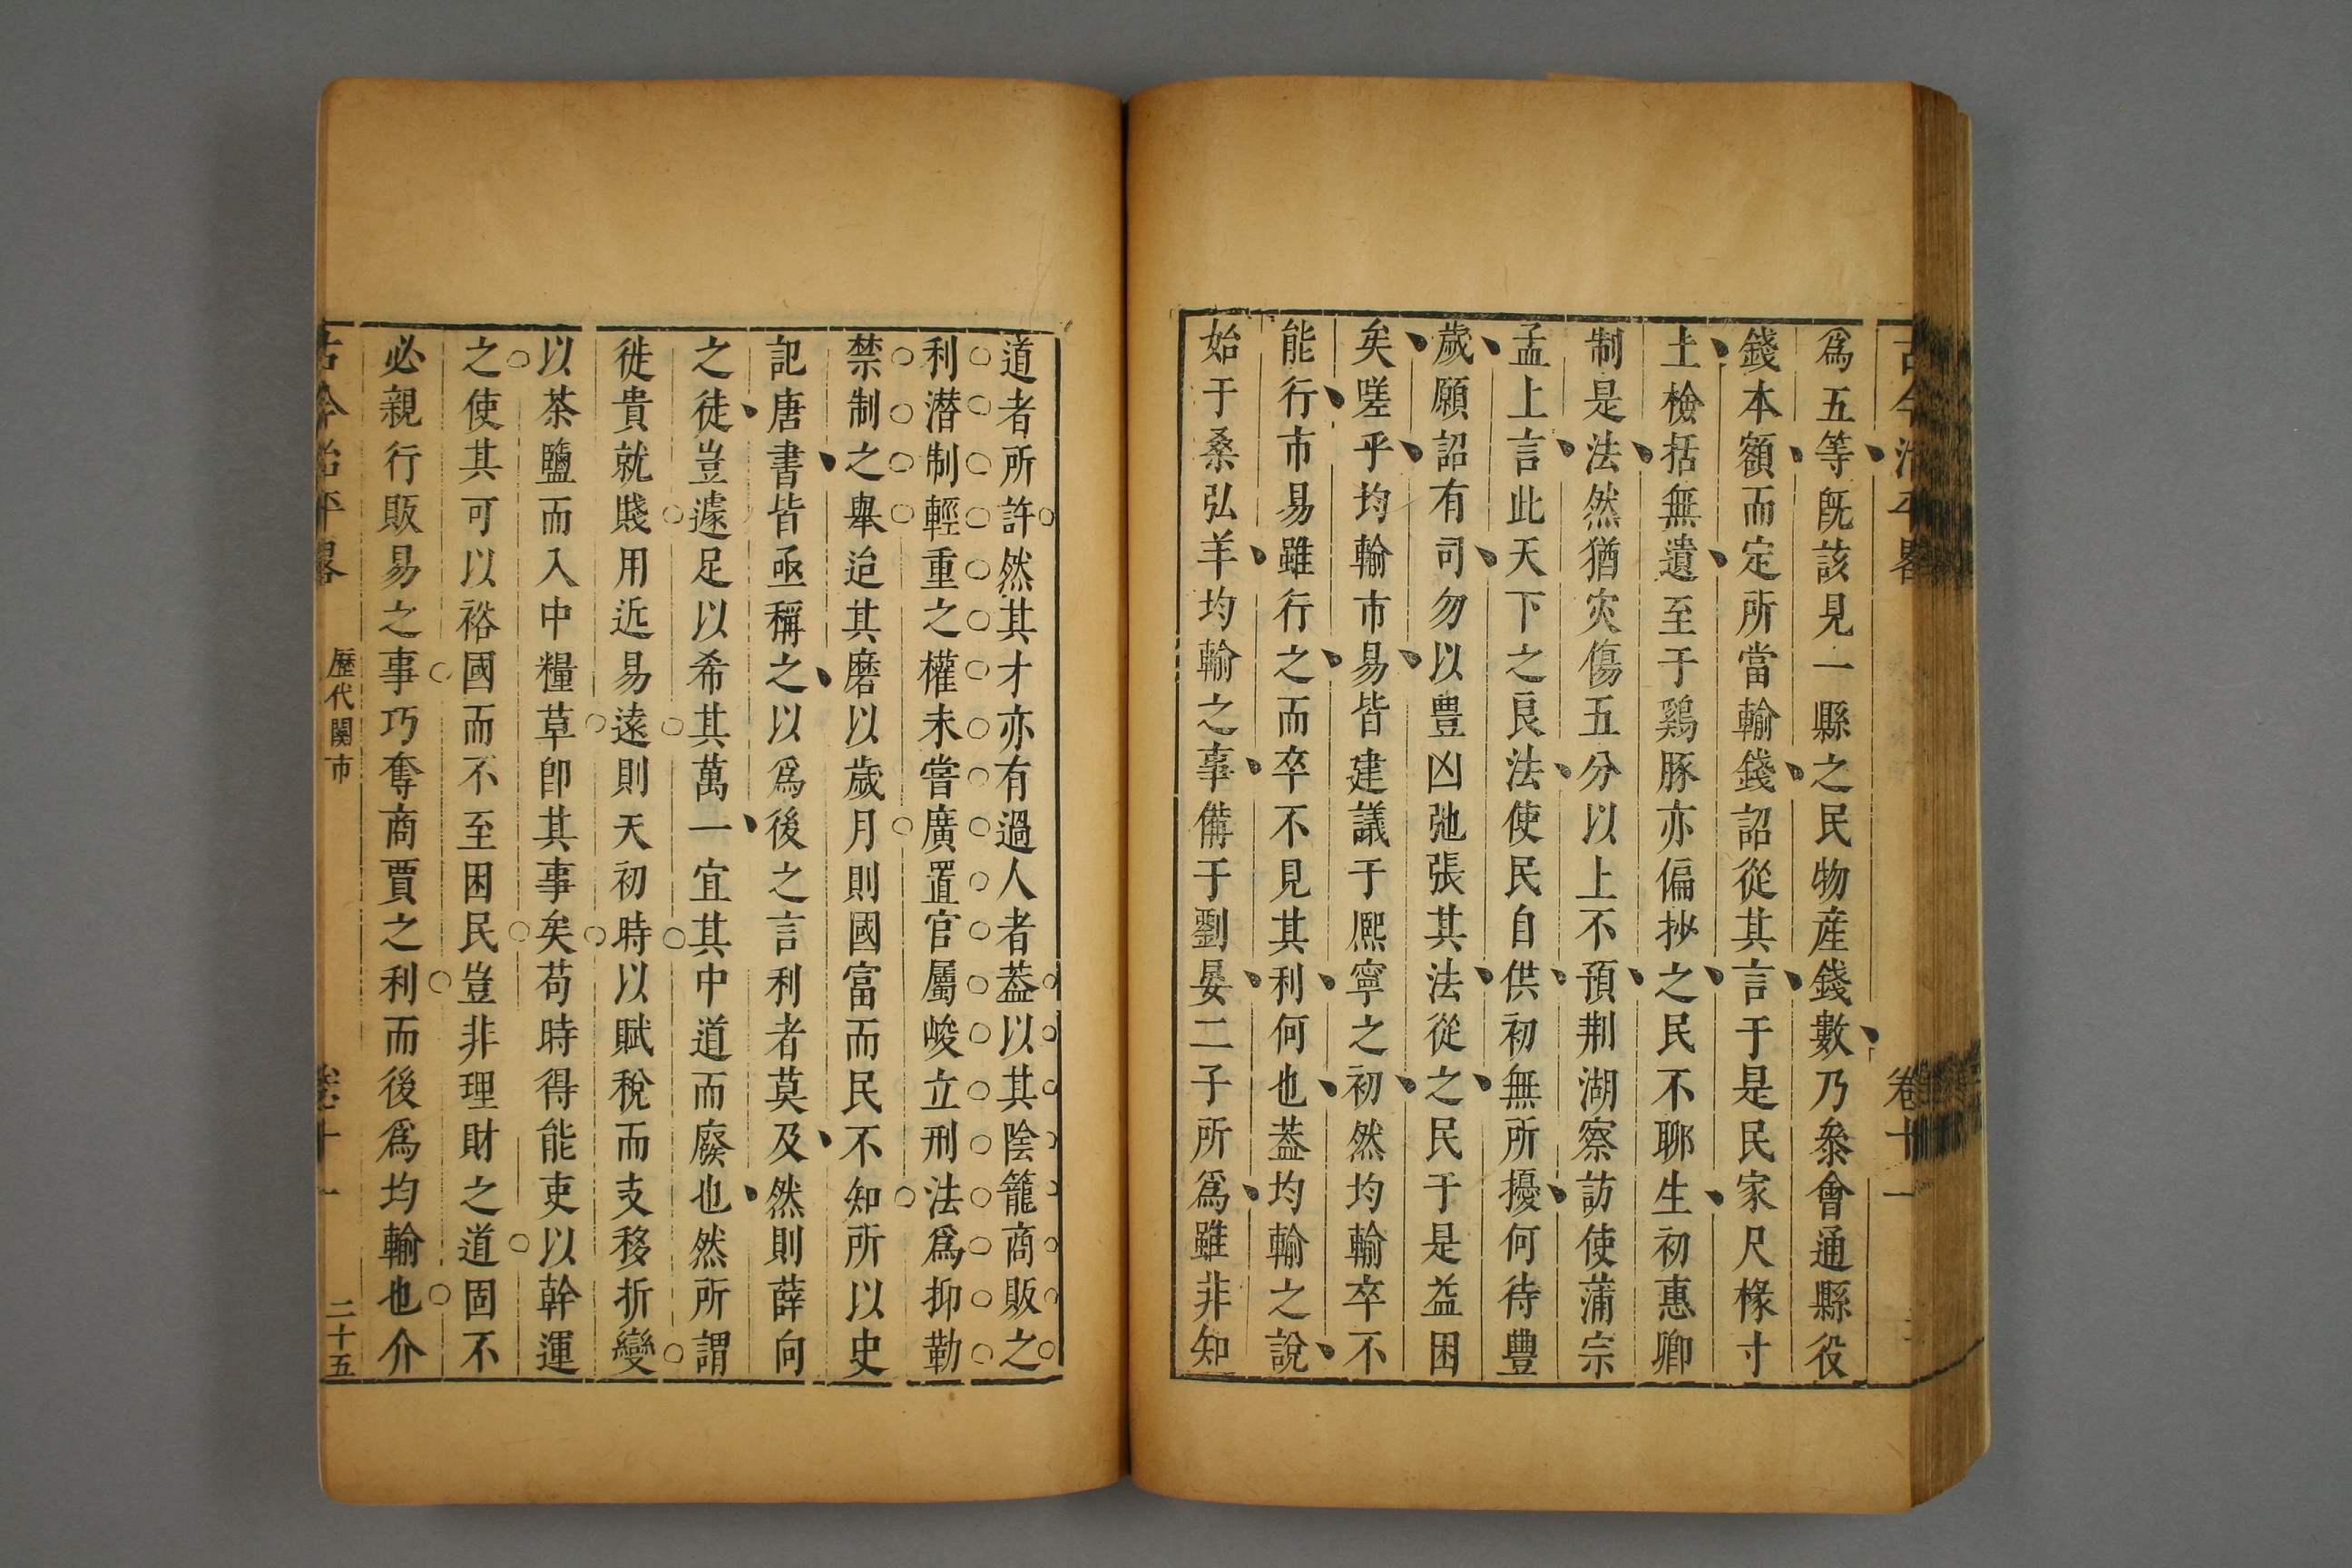 古今治平畧 卷十一
爲五等既該見一縣之民物産錢數乃叅會通縣役
錢本額而定所當輸錢詔從其言于是民家尺椽寸
土檢括無遺至于鷄豚亦偏抄之民不聊生初惠卿
制是法然猶灾傷五分以上不預荆湖察訪使蒲宗
孟上言此天下之良法使民自供初無所擾何待豐
歲願詔有司勿以豊凶弛張其法從之民于是益困
矣嗟乎均輸市易皆建議于熈寧之初然均輸卒不
能行市易雖行之而卒不見其利何也葢均輸之說
始于桑弘羊均輸之事備于劉晏二子所爲雖非知
道者所許然其才亦有過人者葢以其陰籠商販之
利潛制輕重之權未嘗廣置官屬峻立刑法爲抑勒
禁制之舉迨其磨以歲月則國富而民不知所以史
記唐書皆亟稱之以爲後之言利者莫及然則薛向
之徒豈遽足以希其萬一宜其中道而廢也然所謂
徙貴就賤用近易遠則天初時以賦稅而支移折變
以茶鹽而入中糧草卽其事矣苟時得能吏以幹運
之使其可以裕國而不至困民豈非理財之道固不
必親行販易之事巧奪商賈之利而後爲均輸也介
古今治平畧 歷代關市 卷十一 二十五